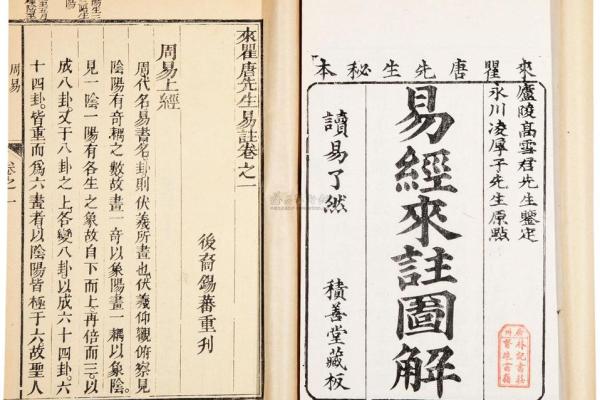 來瞿唐先生秘本
廬陵高雪君先生鑒定
永川凌厚子先生原點
易經來註圖解
讀易了然
積善堂藏板
來瞿唐先生易註卷之一
後裔錫蕃重刊
周易上經
周代名易書名卦則伏羲所畫也伏羲仰觀俯察見
陰陽有奇耦之數故畫一奇以象陽畫一耦以象陰
見一陰一陽有各生之象故自下而上再倍而三以
成八卦又于八卦之上各變八卦以成六十四卦六
十四卦皆重而為六畫者以陰陽皆極于六故聖人
周易
卷之一